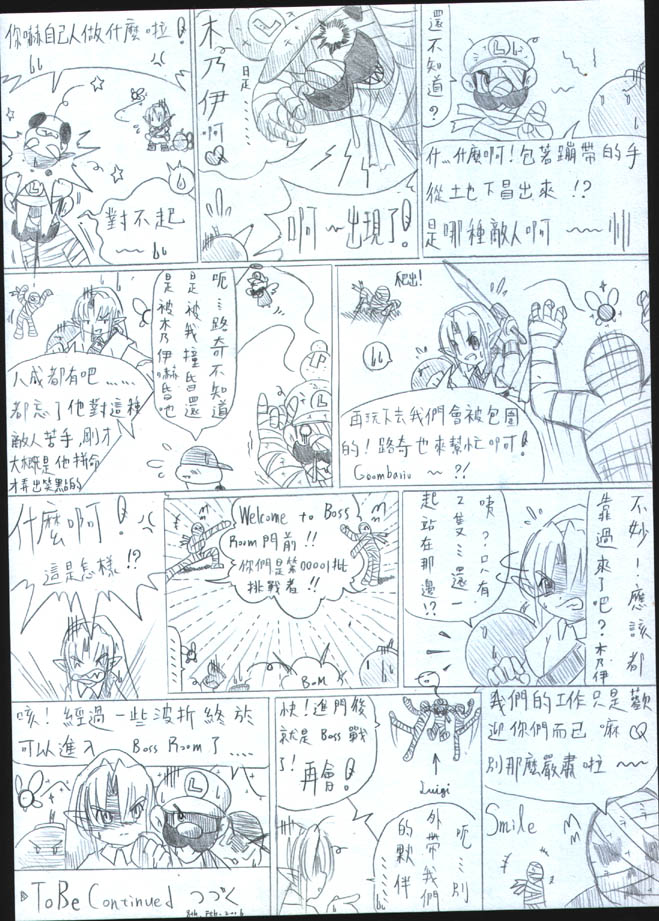 還不知道?
什...什麼啊!包著蹦帶的手
從土也下冒出來!?
是哪種敵人啊~~
L
木乃伊啊
啊~出現了!
你嚇自己人做什麼啦!
對不起
~~
爬出!
再玩下去我們會被包圍
的!路奇也來幫忙吖可!
Goombariu ~?!
呃…路奇不知道
是被我撞昏還
是被木乃伊嚇昏吔
八成都有吧……
都忘了他對這種
敵人苦手,剛才
大概是他拼命
弄出笑點的
不妙!應該都
靠過來了吧?木乃伊
咦?只有
2隻…還一
起站在那邊!?
Welcome to Boss
Room門前!!
你們是第00001批
挑戰者!!
BOM
什麼啊!
這是怎樣!?
我們的工作只是歡
迎你們而已嘛
別那麼嚴肅啦~~
Smile
快!進門後
就是Boss戰
了!再會!
Luigi
呃……別
外帶我們
的夥伴
……
咳!經過一些波折終於
可以進入 Boss Room了....
L
To Be Continued つづく
8th. Feb. 2006